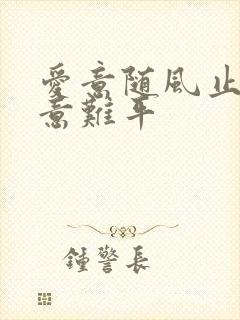 愛意随風止
意難平
鍾警長